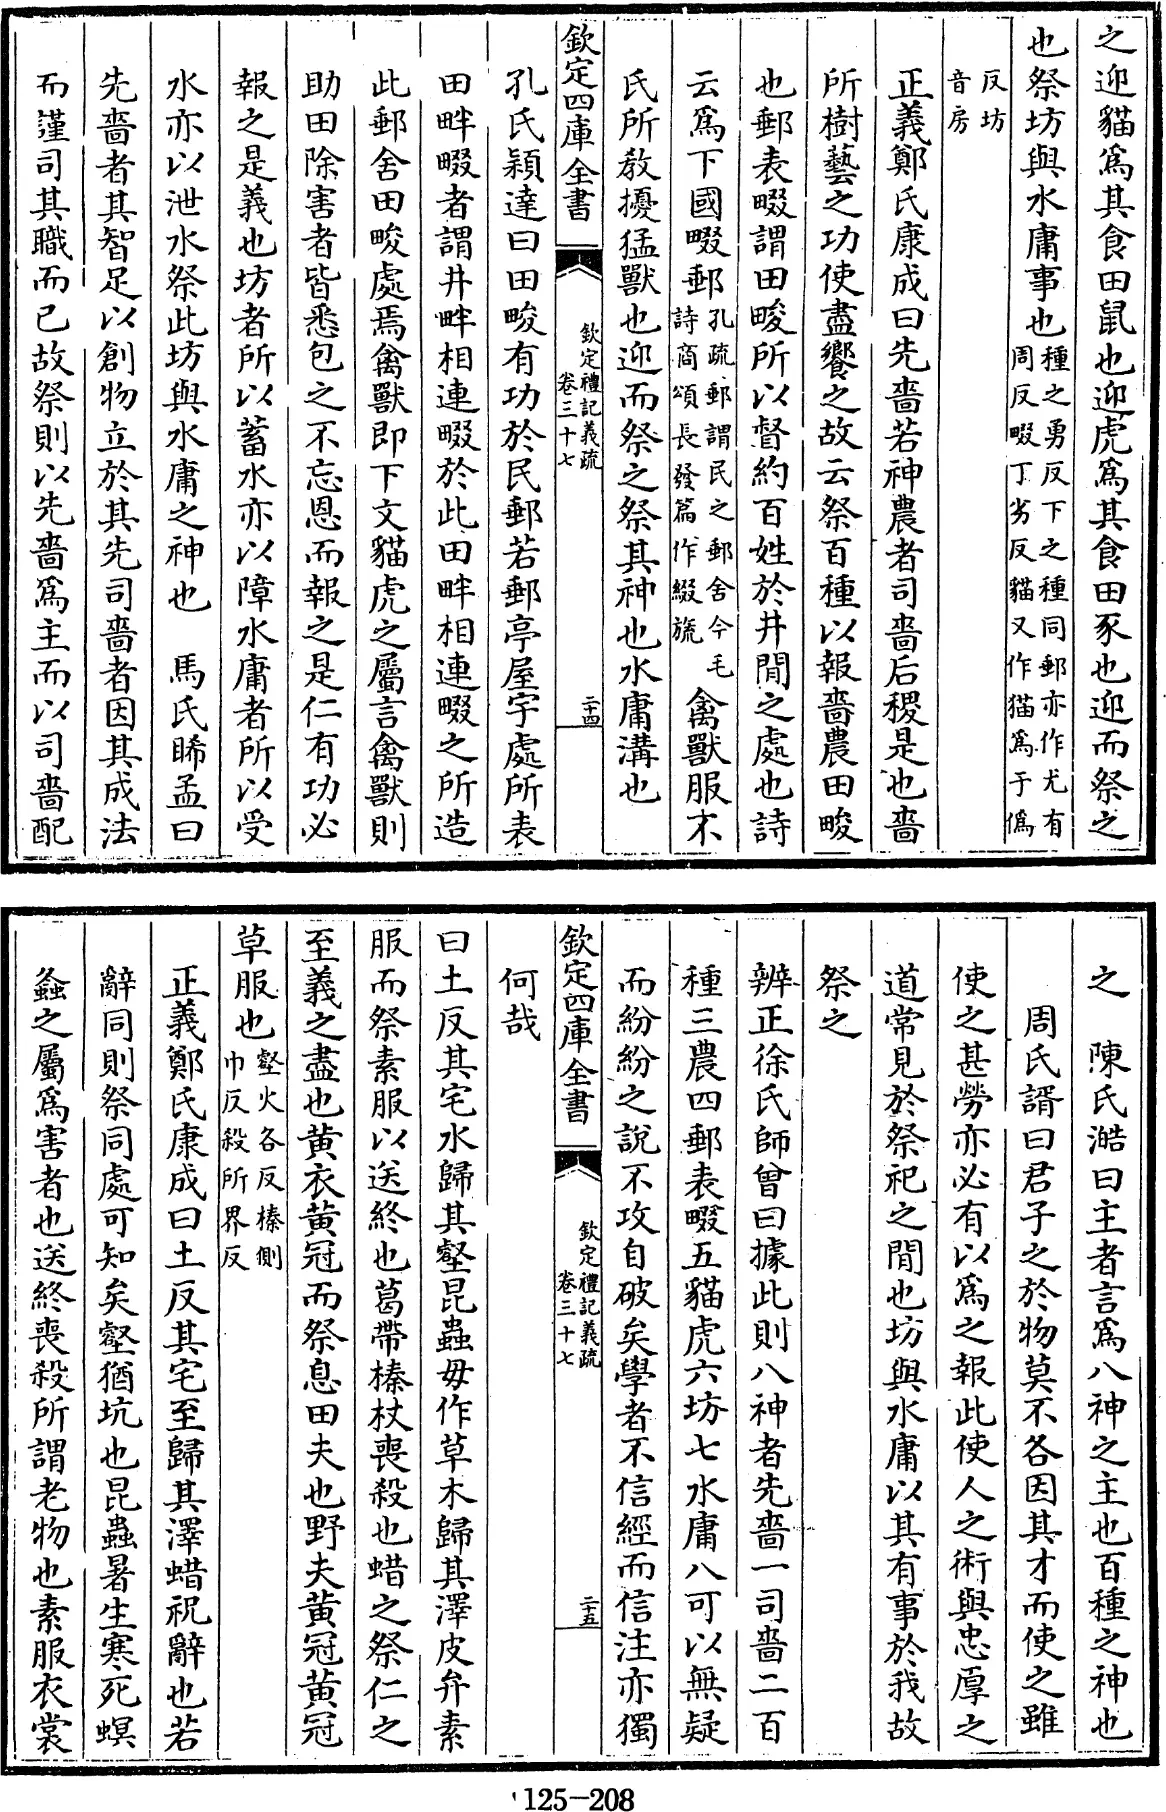 之迎貓爲其食田鼠也迎虎爲其食田豕也迎而祭之
也祭坊與水庸事也種之勇反下之種同郵亦作尤有周反畷丁劣反貓又作猫爲于僞
反坊音房
正義鄭氏康成曰先嗇若神農者司嗇后稷是也嗇
所樹藝之功使盡饗之故云祭百種以報嗇農田畯
也郵表畷謂田畯所以督約百姓於井間之處也詩
云爲下國畷郵孔疏郵謂民之郵舍今毛詩商頌長發篇作綴旒禽獸服不
氏所教擾猛獸也迎而祭之祭其神也水庸溝也
欽定四庫全書 欽定禮記義疏 卷三十七 二十四
孔氏穎達曰田畯有功於民郵若郵亭屋宇處所表
田畔畷者謂井畔相連畷於此田畔相連畷之所造
此郵舍田畯處焉禽獸即下文貓虎之屬言禽獸則
助田除害者皆悉包之不忘恩而報之是仁有功必
報之是義也坊者所以蓄水亦以障水庸者所以受
水亦以泄水祭此坊與水庸之神也 馬氏睎孟曰
先嗇者其智足以創物立於其先司嗇者因其成法
而謹司其職而已故祭則以先嗇爲主而以司嗇配
之 陳氏澔曰主者言爲八神之主也百種之神也
周氏諝曰君子之於物莫不各因其才而使之雖
使之甚勞亦必有以爲之報此使人之術與忠厚之
道常見於祭祀之間也坊與水庸以其有事於我故
祭之
辨正徐氏師曾曰據此則八神者先嗇一司嗇二百
種三農四郵表畷五貓虎六坊七水庸八可以無疑
而紛紛之說不攻自破矣學者不信經而信注亦獨
欽定四庫全書 欽定禮記義疏 卷三十七 二十五
何哉
曰土反其宅水歸其壑昆蟲毋作草木歸其澤皮弁素
服而祭素服以送終也葛帶榛杖喪殺也蜡之祭仁之
至義之盡也黄衣黄冠而祭息田夫也野夫黄冠黄冠
草服也壑火各反榛側巾反殺所界反
正義鄭氏康成曰土反其宅至歸其澤蜡祝辭也若
辭同則祭同處可知矣壑猶坑也昆蟲暑生寒死螟
螽之屬爲害者也送終喪殺所謂老物也素服衣裳
125-208